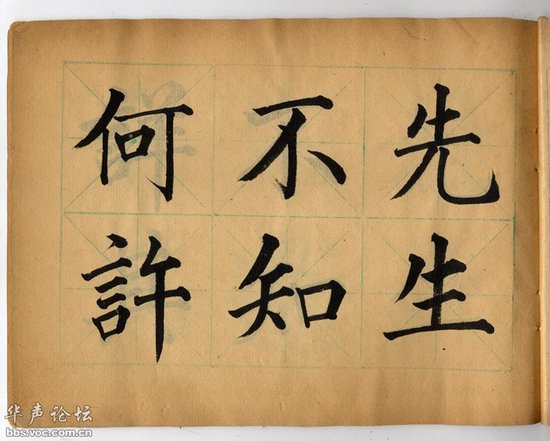 先生
不知
何許
华声论坛
bbs.voc.com.cn